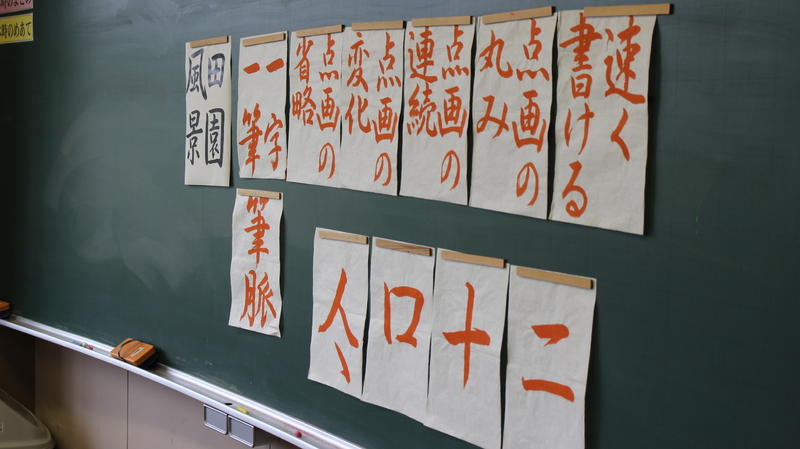 速く
書ける
点画の
丸み
点画の
連続
点画の
変化
点画の
省略
一字
一筆
田園
風景
筆脈
二
十
口
人
時のめあて